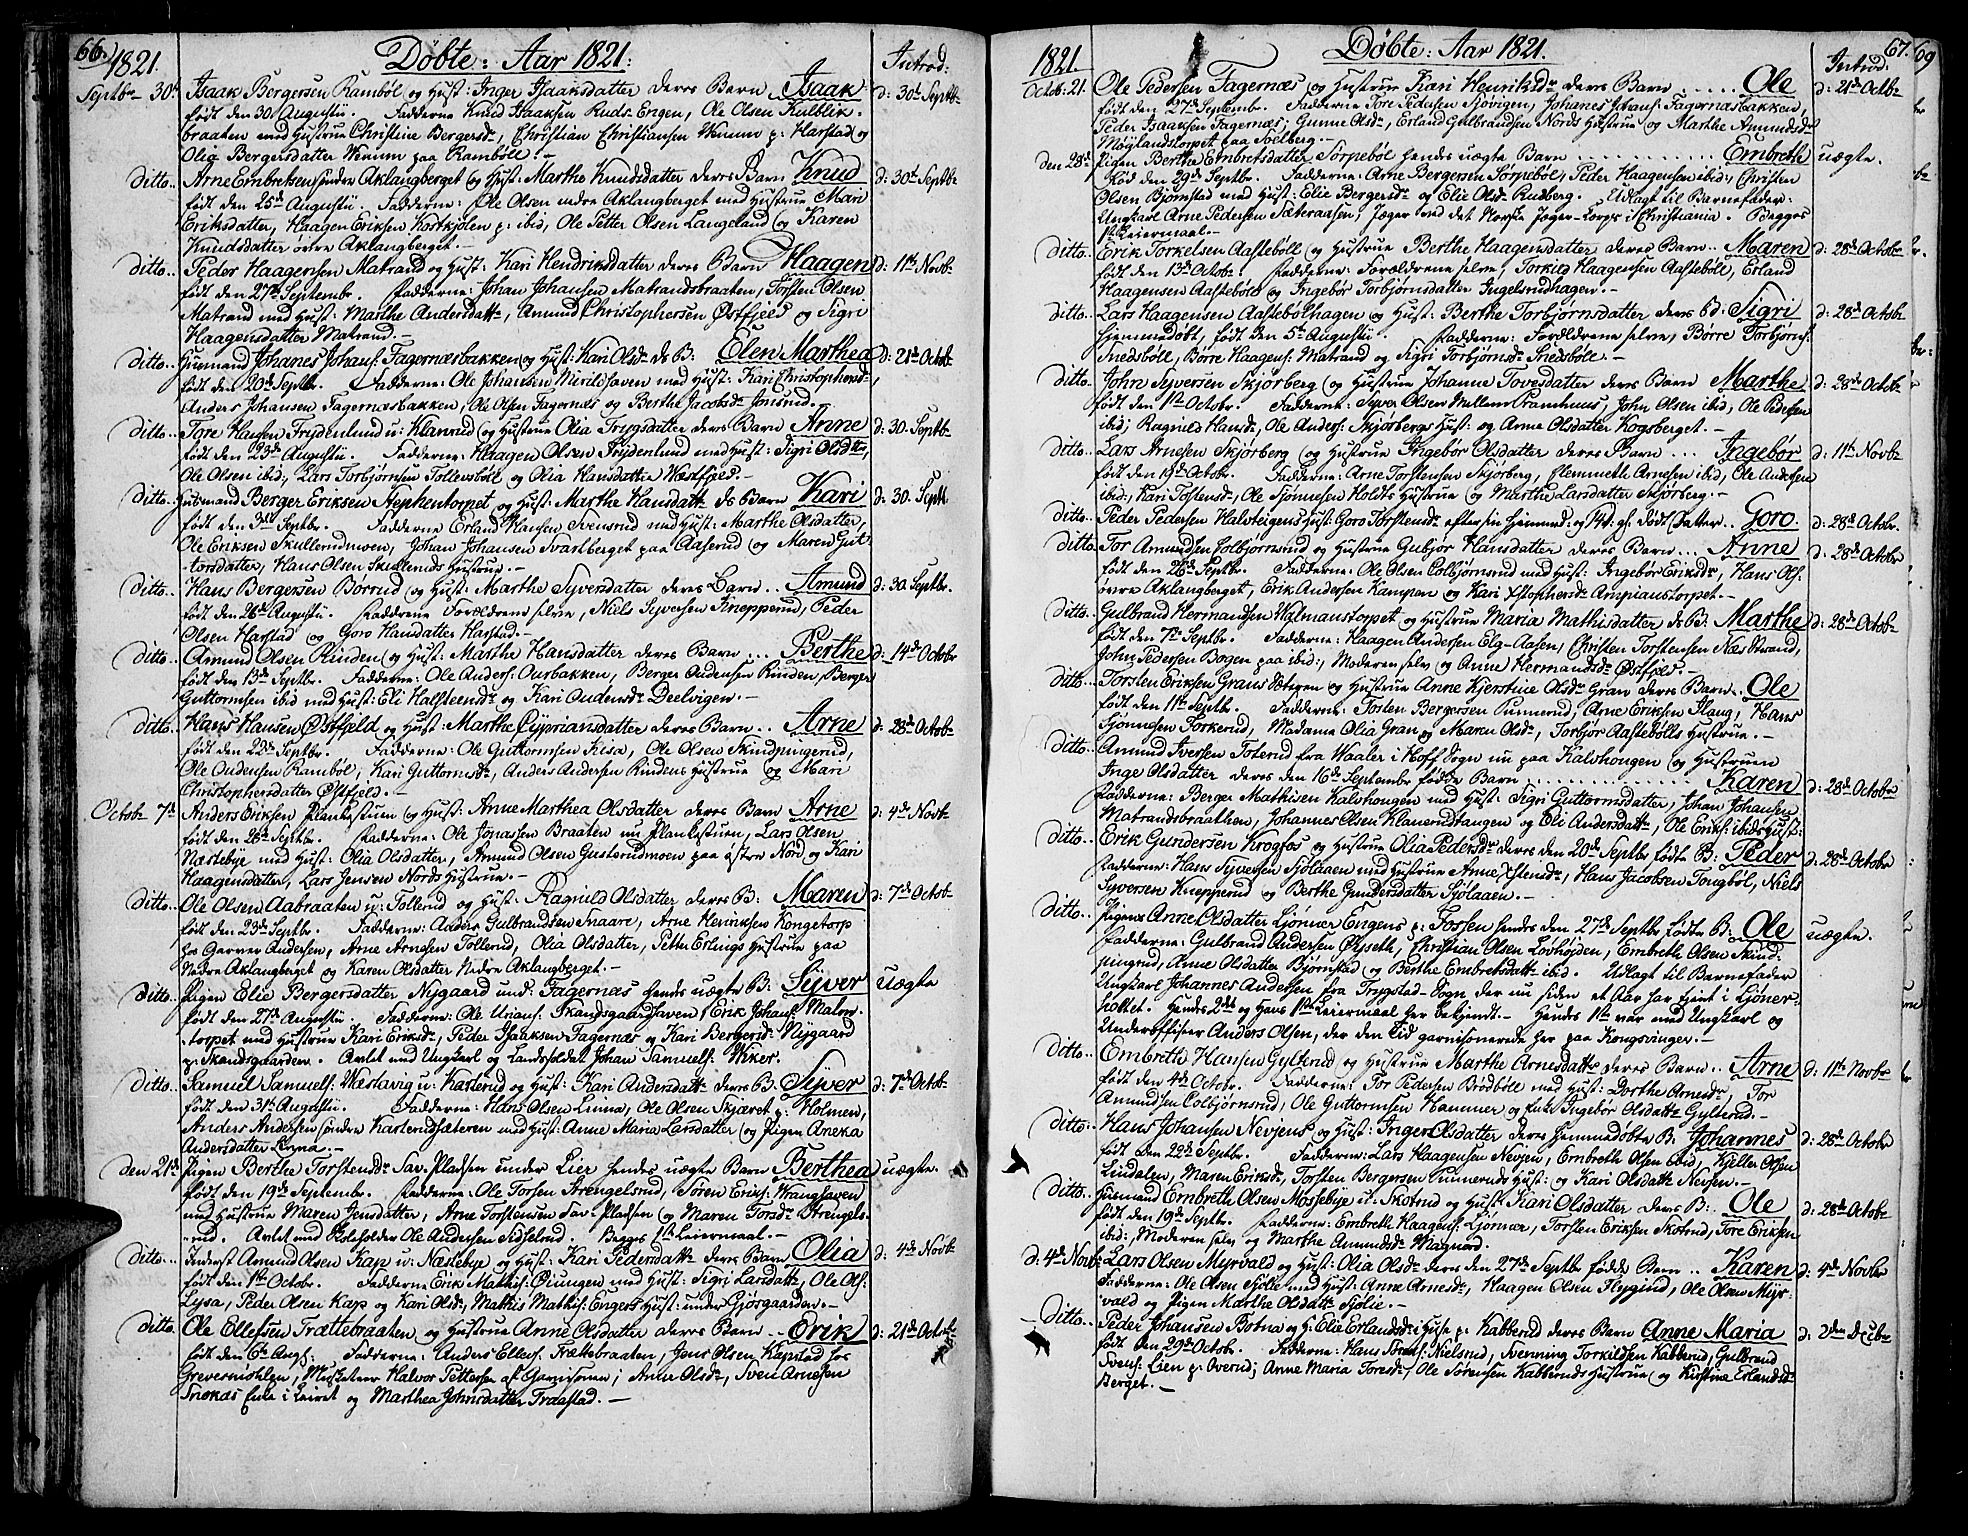 66. 1821. Döbte: Aar 1821: Introd:
Septbr 30te Isaak Bergersen Ramböl og Hust: Inger Isaaksdatter deres Barn Isaak d: 30te Septbr
födt den 30 Augustii. Fadderne Knud Isaaksen Ruds-Engen, Ole Olsen Kulblik-
braaten med Hustrue Christine Bergersdr, Christian Christiansen Wenum p: Harstad og
Olia Bergersdatter Wenum paa Ramböll.
Ditto.. Arne Embretsen söndre Aklangberget og Hust: Marthe Knudsdatter deres Barn Knud d: 30te Septbr
födt den 25de Augustii. Fadderne: Ole Olsen nedre Aklangberget med Hustrue Mari
Eriksdatter, Haagen Eriksen Kostkjölen p: ibid, Ole Petter Olsen Langeland og Karen
Knudsdatter övre Aklangberget.
Ditto.. Peder Haagensen Matrand og Hust: Kari Hendriksdatter deres Barn Haagen d: 11te Novbr
födt den 27de Septembr. Fadderne: Johan Johansen Matrandsbraaten, Torsten Olsen
Matrand med Hust: Marthe Andersdattr, Amund Christophersen Östfjeld og Sigri
Haagensdatter Matrand.
Ditto.. Husmand Johanes Johans: Fagernæsbakken og Hust: Kari Olsdr ds B: Elen Marthea d: 21de Octobr
födt den 20de Septbr. Fadderne: Ole Johansen med Hust: Kari Christophersdr
Anders Johansen Fagernæsbakken, Ole Olsen Fagernæs og Berthe Jacobsdr Jonsrud.
Ditto.. Tore Hansen Frydenlund u: Klanrud og Hustrue Olia Trygsdatter deres Barn Anne d: 30. Septbr
födt den 23de Augustii. Fadderne: Haagen Olsen Frydenlund med Hust: Sigri Olsdttr,
Ole Olsen ibid:, Lars Torbjörnsen Tollevsböl og Olia Hansdatter Wæstfjeld.
Ditto.. Husmand Berger Eriksen Aephentorpet og Hust: Marthe Hansdattr ds Barn Kari d: 30. Septbr
födt den 3die Septbr. Fadderne Erland Hansen Svensrud med Hust: Marthe Olsdatter,
Ole Eriksen Skullerudmoen, Johan Johansen Svartberget paa Aaserud og Maren Gut-
torsdatter, Hans Olsen Skulleruds Hustrue.
Ditto.. Hans Bergersen Börrud og Hust: Marthe Syversdatter deres Barn Amund d: 30. Septbr.
födt den 26de Augustii. Fadderne Forældrene selve, Niels Syversen Knepperud, Peder
Olsen Harstad og Goro Hansdatter Harstad.
Ditto.. Amund Olsen Rinden og Hust: Marthe Hansdatter deres Barn ... Berthe d: 14de Octobr
födt den 13de Septbr. Fadderne: Ole Anders: Ourbakken, Berger Audensen Rinden, Berger
Guttormsen ibid med Hust: Eli Halsteensdr og Kari Audensdr Deelvigen.
Ditto.. Hans Hansen Östfjeld og Hust: Marthe Cypriansdatter deres Barn .. Arne d: 28de Octobr
födt den 22de Septbr. Fadderne: Ole Guttormsen Kisa, Ole Olsen Skindpingerud,
Ole Audensen Ramböl, Kari Guttormsdr, Anders Andersen Rindens Hustrue og Mari
Christophersdatter Östfjeld.
Octobr 7de Anders Eriksen Plankesturn og Hust: Anne Marthea Olsdatter deres Barn Arne d: 4de Novbr
födt den 26de Septbr. Fadderne: Ole Jonassen Braaten nu Plankesturn, Lars Olsen
Næstebye med Hust: Olia Olsdatter, Amund Olsen Gusterudmoen paa östre Nord og Kari
Haagensdatter, Lars Jensen Nords Hustrue.
Ditto.. Ole Olsen Aabraaten u: Tollerud og Hust: Ragnild Olsdatter deres B: Maren d: 7de Octobr
födt den 23de Septbr. Fadderne: Anders Gulbrandsen Snaare, Arne Henriksen Kongetorp
hos Garver Andersen, Arne Arnesen Tollerud, Olia Olsdatter, Petter Erlings Hustrue paa
Nedre Aklangberget og Karen Olsdatter Nedre Aklangberget.
Ditto.. Pigen Elie Bergersdatter Nygaard und: Fagernæs hendes uægte B: Syver uægte
födt den 27de Augustii. Fadderne: Ole Urians: Skandsgaardshaven, Erik Johans: Malm-
torpet med Hustrue Kari Eriksdr, Peder Isaaksen Fagernæs og Kari Bergersdr Nygaard
p: Skandsgaarden. Avlet med Ungkarl og Landsoldat Johan Samuels: Viker.
Ditto.. Samuel Samuels: Wæstavig u: Karterud og Hust: Kari Andersdattr deres B: Syver d: 7de Octob:
födt den 31te Augustii. Fadderne: Hans Olsen Linna, Ole Olsen Skjæret p: Holmen,
Anders Andersen söndre Karterudsæteren med Hust: Anne Maria Larsdatter og Pigen Aneka
Andersdatter Linna.
den 21de Pigen Berthe Torstensdr Sav-Pladsen under Lier hendes uægte Barn Berthea uægte.
födt den 19de Septembr. Fadderne: Ole Torsen Strengelsrud, Sören Eriks: Wranghaven
med Hustrue Maren Jensdatter, Arne Torstensen Sav-Pladsen og Maren Torsdr Strengels-
rud. Avlet med Ole Andersen Sidselrud. Begges 1ste Leiermaal.
Ditto.. Inderst Amund Olsen Kap u: Næstebye og Hust: Kari Pedersdattr deres Barn Olia d: 4de Novbr
födt den 1ste Octobr. Fadderne Erik Mathis: Öiungen med Hust: Sigri Larsdattr, Ole Ols:
Lysa, Peder Olsen Kap og Kari Olsdr, Mathis Mathis: Engers Hust: under Gjörsgaarden.
Ditto. Ole Ellefsen Trættebraaten og Hustrue Anne Olsdatter deres Barn .. Erik d: 21de Octobr
födt den 6te Augs:. Fadderne: Anders Ellefs: Trættebraaten, Jens Olsen Kapstad hos
Grevesmöhlen, Musketeer Halvor Pettersen af Garnisonen, Anne Olsdr, Sven Arnesen
Snokas Enke i Leiret og Marthea Johnsdatter Traastad.
1821. Döbte: Aar 1821. 67. Introd: 69
Octob: 21. Ole Pedersen Fagernæs og Hustrue Kari Henriksdr deres Barn ..... Ole d: 21de Octbr
födt den 27de Septembr. Fadderne Tore Pedersen Sjövigen, Johanes Johans: Fagernæsbakken,
Peder Isaaksen Fagernæs, Gunne Olsdr, Erland Gulbrandsen Nords Hustrue og Marthe Amundsdr
Möylandstorpet paa Solberg.
den 28de Pigen Berthe Embretsdatter Torpeböl hendes uægte Barn .......... Embreth uægte.
Fød den 29de Septbr. Fadderne: Arne Bergersen Torpeböl, Peder Haagensen ibid:, Christen
Olsen Björnstad med Hust: Elie Bergersdr og Elie Olsdr Rudberg. Udlagt til Barnefader:
Ungkarl Arne Pedersen Sæteraasen, Jæger ved det Norske Jæger-Corps i Christiania. Begges
1ste Leiermaal.
Ditto.. Erik Torkelsen Aasteböll og Hustrue Berthe Haagensdatter deres Barn .. Maren d: 28de Octobr
födt den 13de Octobr. Fadderne: Forældrene selve, Torkild Haagensen Aasteböll, Erland
Haagensen Aasteböl og Ingebör Torbjörnsdatter Ingelsrudhagen.
Ditto.. Lars Haagensen Aastebölhagen og Hust: Berthe Torbjörnsdatter deres B: Sigri d: 28de Octobr
hjemmedöbt, födt den 5te Augustii. Fadderne: Forældrene selve, Börre Torbjörns:
Snedsböll, Börre Haagens: Matrand og Sigri Torbjörnsdr Snedsböll.
Ditto.. John Syversen Skjörberg og Hustrue Johanne Tovesdatter deres Barn Marthe d: 28de Octobr
födt den 1ste Octobr. Fadderne: Syver Olsen Mellem Pramhuus, John Olsen ibid, Ole Pedersen
ibid, Ragnild Hansdr, Ole Anders: Skjörbergs Hust: og Anne Olsdatter Kogsberget.
Ditto.. Lars Arnesen Skjörberg og Hustrue Ingebör Olsdatter deres Barn ... Ingebör d: 11te Novbr
födt den 19de Octobr. Fadderne: Arne Torstensen Skjörberg, Clemmett Arnesen ibid, Ole Andersen
ibid:, Kari Tostensdr, Ole Sjönnesen Holdts Hustrue og Marthe Larsdatter Skjörberg.
Ditto.. Peder Pedersen Halsteigens Hust: Goro Torstensdr efter sin hjemmed: og 14 d: gl: Födt Datter.. Goro. d: 28de Octobr.
Ditto.. Tor Amundsen Colbjörnsrud og Hustrue Gubjör Hansdatter deres Barn ... Anne d: 28de Octobr
födt den 26de Septbr. Fadderne: Ole Olsen Colbjörnsrud med Hust: Ingebör Eriksdr, Hans Ols:
övre Aklangberget, Erik Andersen Kampen og Kari Xstophersdr Ampianstorpet.
Ditto.. Gulbrand Hermandsen Valmanstorpet og Hustrue Maria Mathisdatter ds B: Marthe d: 28de Octobr
födt den 7de Septbr. Fadderne: Haagen Andersen Elg-Aasen, Christen Torstensen Næs Strand,
John Pedersen Bogen paa ibid:, Moderen selv og Anne Hermandsdr Östfjeld.
Ditto.. Torsten Eriksen Grans Sæteren og Hustrue Anne Kjerstine Olsdr Gran deres Barn.. Ole
födt den 11te Septbr. Fadderne: Tosten Bergersen Punnerud, Arne Eriksen Haug, Hans
Sjönnesen Torkerud, Madame Olia Gran og Maren Olsdr, Torbjör Aastebölls Hustrue.
Ditto.. Amund Iversen Toterud fra Waaler i Hoff Sogn nu paa Kalvhougen og Hustruen
Inge Olsdatter deres den 16de Septembr födde Barn ............ Karen d: 28de Octobr
Fadderne: Berger Mathisen Kalvhougen med Hust: Sigri Guttormsdatter, Johan Johansen
Matrandsbraathen, Johannes Olsen Klanerudtangen og Eli Andersdattr, Ole Eriks: ibids Hust:
Ditto.. Erik Gundersen Krogfos og Hustrue Olia Pedersdr deres den 20de Septbr födte B: Peder d: 28de Octobr
Fadderne: Hans Syversen Sjölaaen med Hustrue Anne Xstensdr, Hans Jacobsen Tougböl, Niels
Syversen Knepperud og Berthe Gundersdatter Sjölaaen.
Ditto.. Pigen Anne Olsdatter Ljönner Engens p: Forsen hendes den 27de Septbr födte B: Ole uægte.
Fadderne: Gulbrand Andersen Öyseth, Christian Olsen Lövhöjden, Embreth Olsen Skind-
pingrud, Anne Olsdatter Björnstad og Berthe Embretsdattr ibid. Udlagt til Barnefader
Ungkarl Johannes Andersen fra Trygstad-Sogn der nu siden et Aar har tjent i Ljöner-
holtet. Hendes 2det og Hans 1ste Leiermaal her bekjendt. Hendes 1ste var med Ungkarl og
Underofficer Anders Olsen, der den Tid garnisonerede her paa Kongsvinger.
Ditto.. Embreth Hansen Gylterud og Hustrue Marthe Arnesdattr deres Barn.. Arne d: 11te Novbr
födt den 4de Octobr. Fadderne: Tor Pedersen Brödböll med Hust: Dorthe Arnesdr, Tor
Amundsen Colbjörnsrud, Ole Guttormsen Hammer og Enke Ingebör Olsdattr Gylterud.
Ditto. Hans Johansen Nevjens og Hust: Inger Olsdatter deres hjemmedöbte B: Johannes d: 28de Octobr
födt den 22de Septbr. Fadderne: Lars Haagensen Nevjen, Embreth Olsen ibid, Kjeller Olsen
Lindalen, Maren Eriksdr, Torsten Bergersen Punneruds Hust: og Kari Olsdattr Nevjen.
Ditto.. Husmand Embreth Olsen Mossebye u: Skotrud og Hust: Kari Olsdatter deres B: Ole d: 28de Octobr
födt den 19de Septbr. Fadderne: Embreth Haagens: Ljönner, Torsten Eriksen Skotrud, Tore Eriksen
ibid:, Moderen selv og Marthe Amundsdr Magnor.
d. 4de Novbr Lars Olsen Myrvald og Hust: Olia Olsdr deres den 27de Septbr födde Barn .. Karen d: 4de Novbr
Fadderne: Ole Olsen Sjölie med Hust: Anne Arnesdr, Haagen Olsen Flygind, Ole Olsen Myr-
vald og Pigen Marthe Olsdattr Sjölie.
Ditto.. Peder Johansen Botna og H: Elia Erlandsdr i Huse p: Kabberud deres Barn Anne Maria d: 2den Dcbr
födt den 29de Octobr. Fadderne: Hans Nielsrud, Svenning Torkildsen Kabberud, Gulbrand
Svens: Lien p: Overud, Anne Maria Toresdr, Ole Sörensen Kabberuds Hustrue og Kirstine Erlandsdr
Berget.